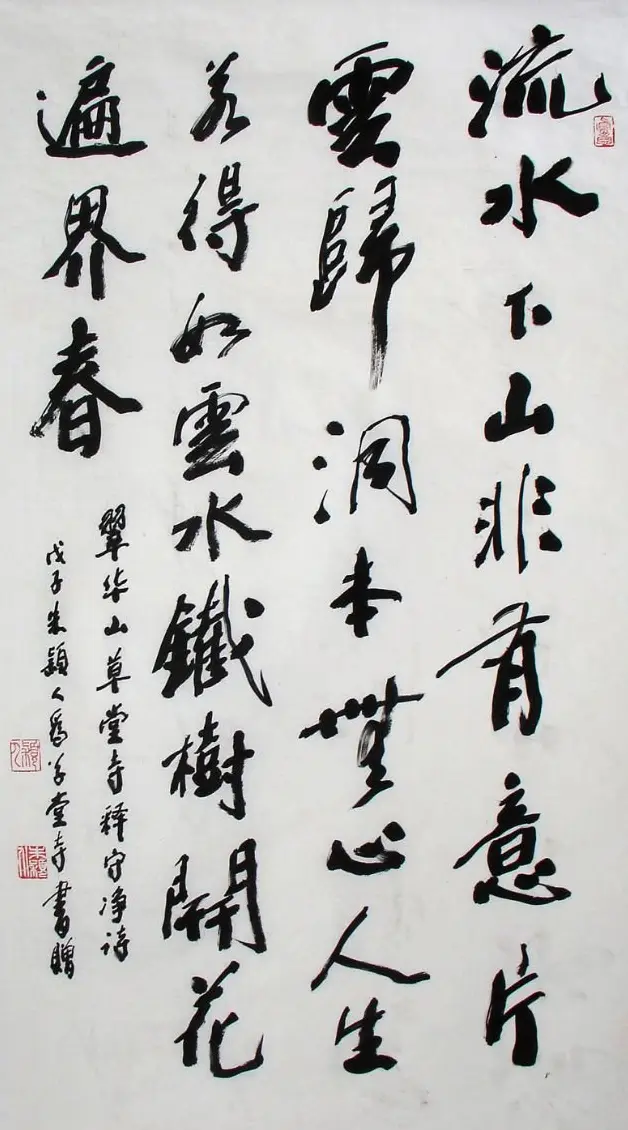 流水下山非有意片
雲歸洞本無心人生
若得如雲水鐵樹開花
遍界春
翠华山草堂寺释守净诗
戊子朱穎人為草堂寺書贈